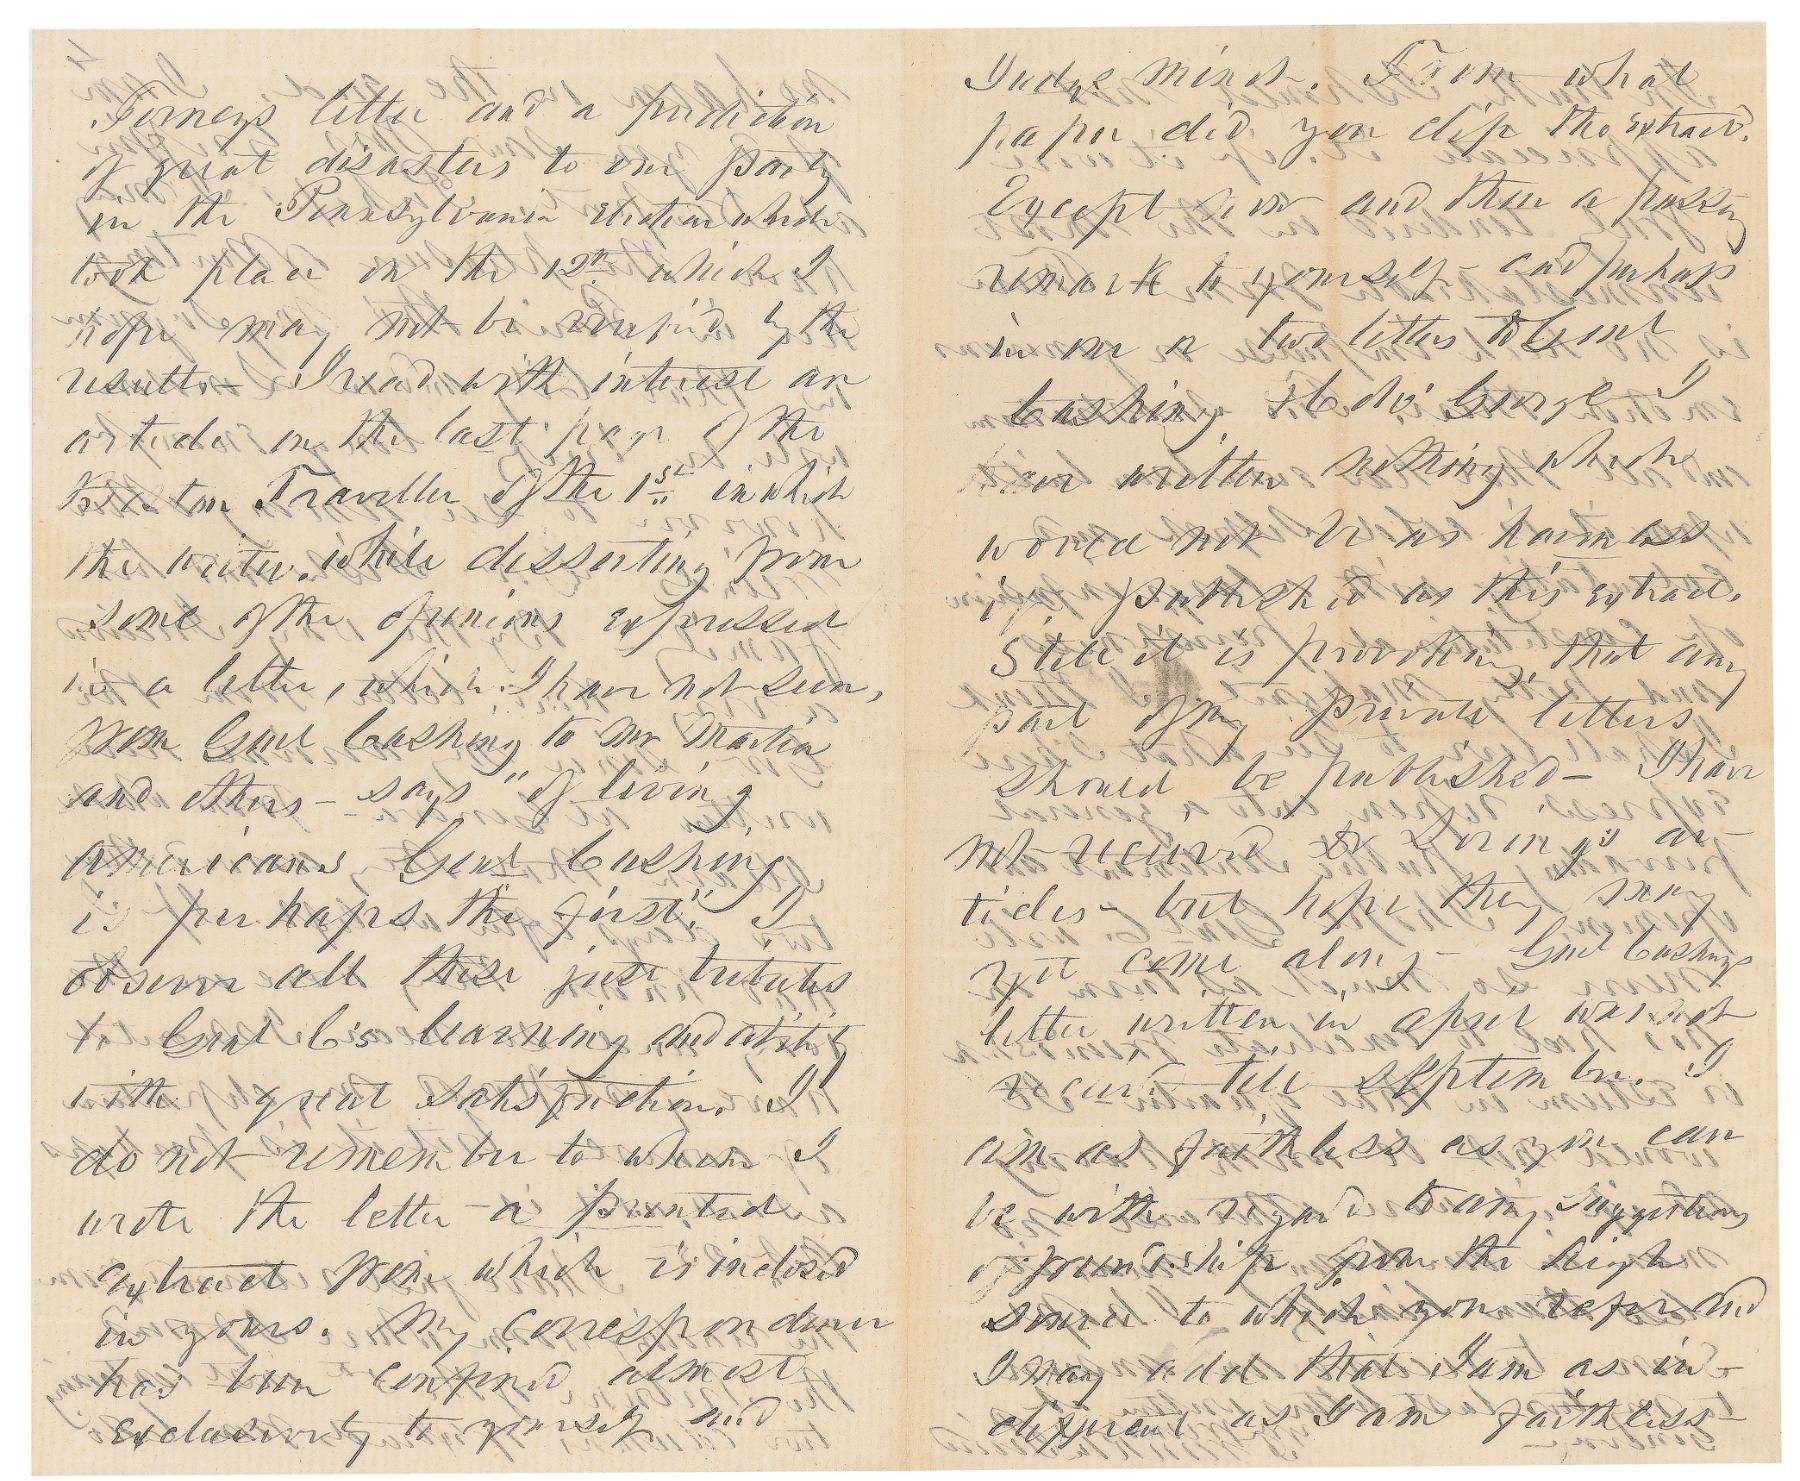 Forneys letter and a prediction
of great disasters to our party
in the Pennsylvania election which
took place on the 12th. which I
hope may not be verified by the
results— I read with interest an
article on the last page of the
Boston Traveller of the 1st in which
the writer, while dissenting from
some of the opinions expressed
in a letter, which I have not seen,
from Genl Cushing to Mr Martin
and others— says "of living
americans Genl Cushing
is perhaps the first". I
observe all these just tributes
to Genl C's learning and ability
with great satisfaction. I
do not remember to whom I
wrote the letter— a printed
extract from which is inclosed
in yours. My correspondence
has been confined almost
exclusively to yourself and
Judge Minot. From what
paper did you clip the extract.
Except now and then a passing
remark to yourself— and perhaps
in one or two letters to Genl
Cushing & Col George I
have written nothing which
would not be as harmless
if published as this extract.
Still it is provoking that any
part of my private letters
should be published— I have
not received Dr Loring's ar-
ticles— but hope they may
yet come along— Genl Cushings
letter written in april was not
recd. till September. I
am as faithless as you can
be with regard to any suggestions
of friendship from the high
source to which you refer and
I may add that I am as in-
different as I am faithless—